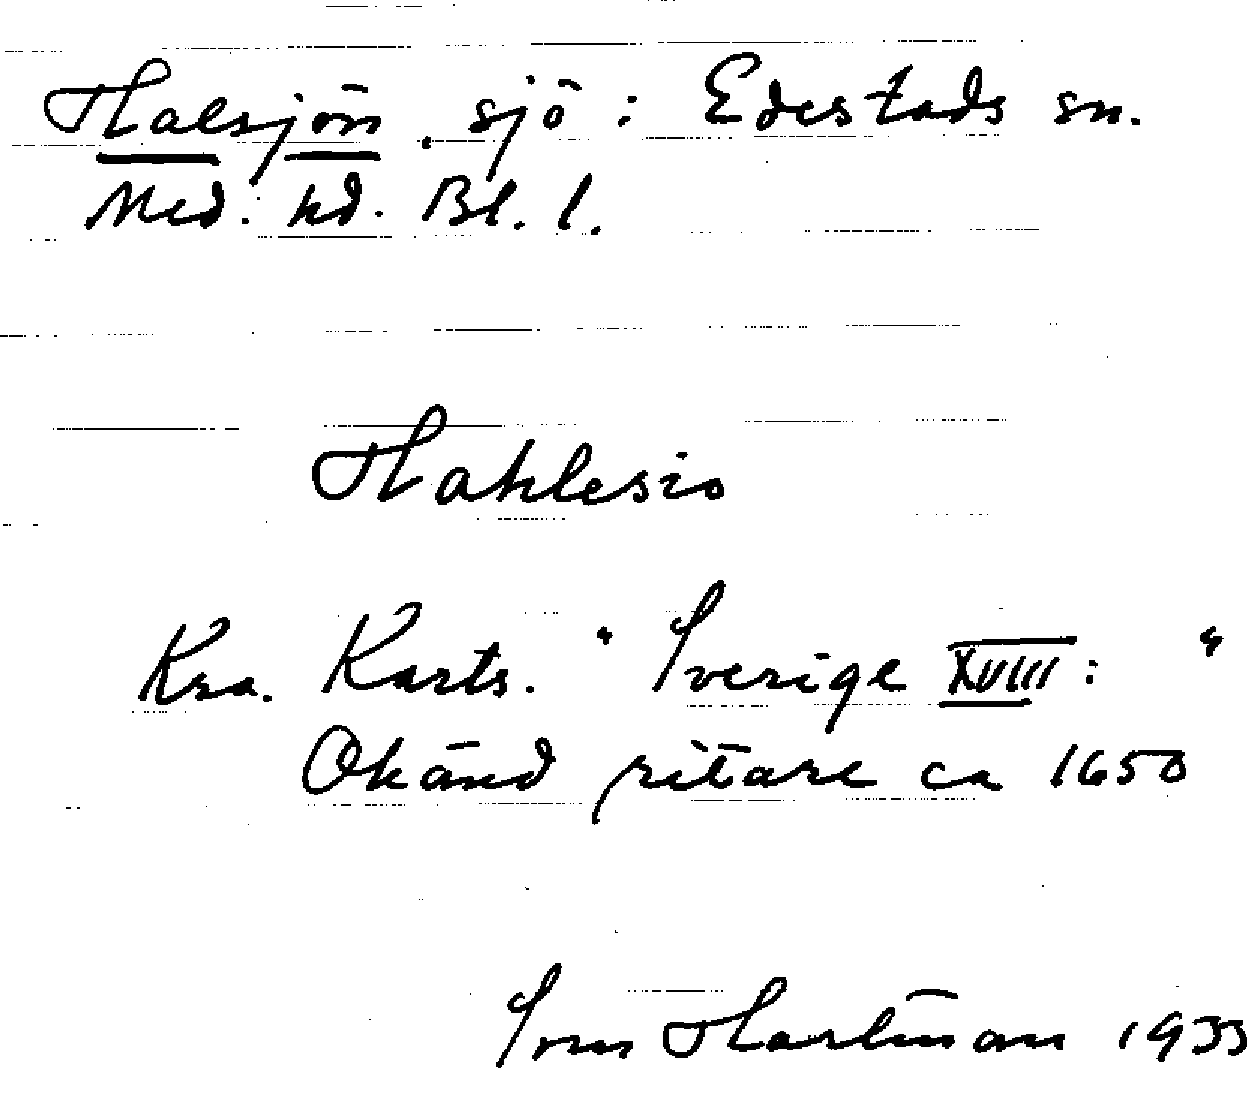 Halsjön, sjö: Edestads sn.
Med. hd. Bl. l.
Hahlesio
Kra. Karts. "Sverige XVIII: "
Okänd ritare ca 1650
Hartman 1933